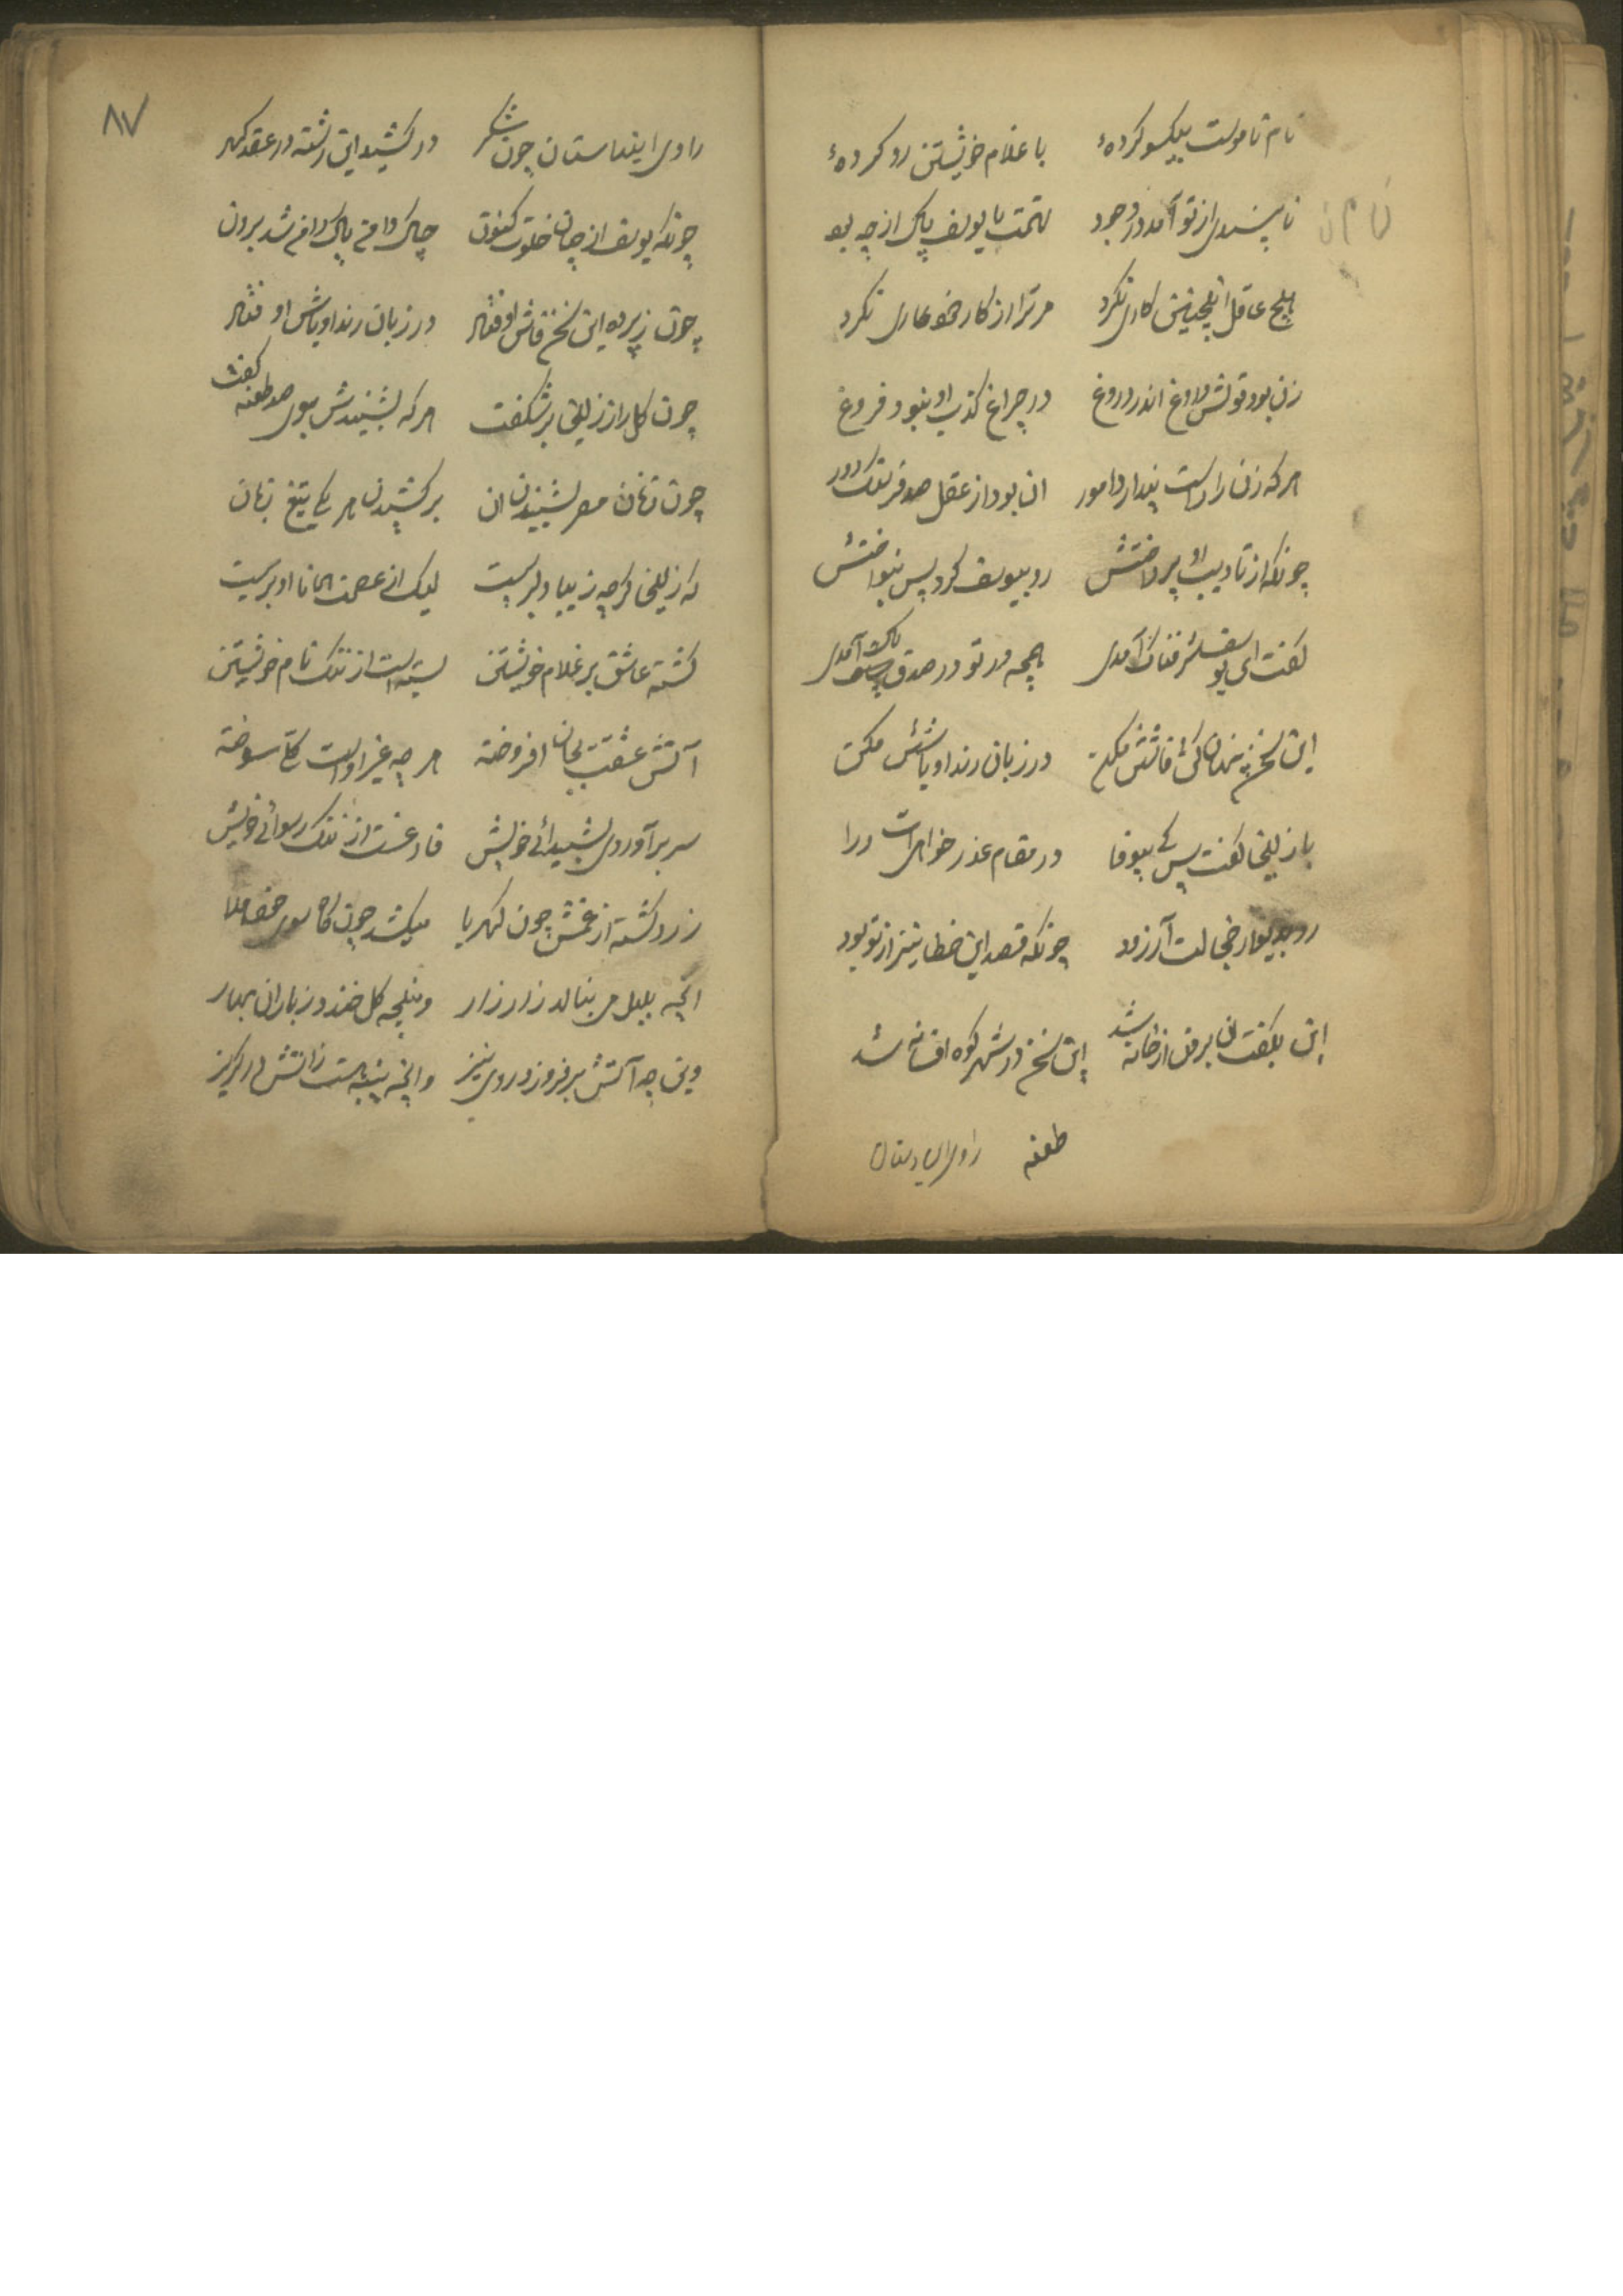 نام ناموست بیکسو کرده‌ٔ با غلام خویشتن رو کرده‌ٔ
ناپسندی از تو آمد در وجود تهمت با یوسف پاک از چه بود
هیچ عاقل اینچنین کاری نکرد مر ترا از کار خود عاری نکرد
زن بود قولش دروغ اندر دروغ در چراغ کذب او نبود فروغ
هر که زن را راست پندارد امور ان بود از عقل صد فرسنگ دور
چونکه از تادیب او پرداختش رو بیوسف کرد پس بنواختش
گفت ای یوسف آمدی همچه در تو در صدق پاک آمدی
این سخن پنهان کن فاشش مکن در زبان رند اوباشش مکن
با زلیخا گفت پس کی بیوفا در مقام عذر خواهی درا
رو بدیوار خجالت آر زود چونکه قصد این خطا نیز از تو بود
این بگفت از خانه شد این سخن در شهر کوه افسانه شد
طعنه راوی این داستان
۸۷
راوی اینداستان چون شکر در کشید این رشته در عقد گهر
چونکه یوسف از خلوت کنون چاک دامن پاک دامن شد برون
چون ز پرده این سخن فاش اوفتاد در زبان رند اوباش اوفتاد
چون گل راز زلیخا بر شکفت هر که بشنیدش بوی صد طعنه گفت
چون زنان مصر بشنیدن ان بر کشیدن هر یکی تیغ زبان
که زلیخا گرچه زیبا دلبریست لیک از عصمت همانا او بریست
گشته عاشق بر غلام خویشتن از ننگ نام خویشتن
آتش عشقت بجان افروخته هر چه غیر اوست کلی سوخته
سر برآوردی بشیدائی خویش فارغست از ننگ رسوائی خویش
زرد گشته از غمش چون کهربا میکشد چون کاه سوی خود ملا
انچه بلبل می بنالد زار زار ونچه گل خندد ز باران بهار
وین چه آتش بر فروزد روی نیز وانچه پنبه است زاتش در گریز